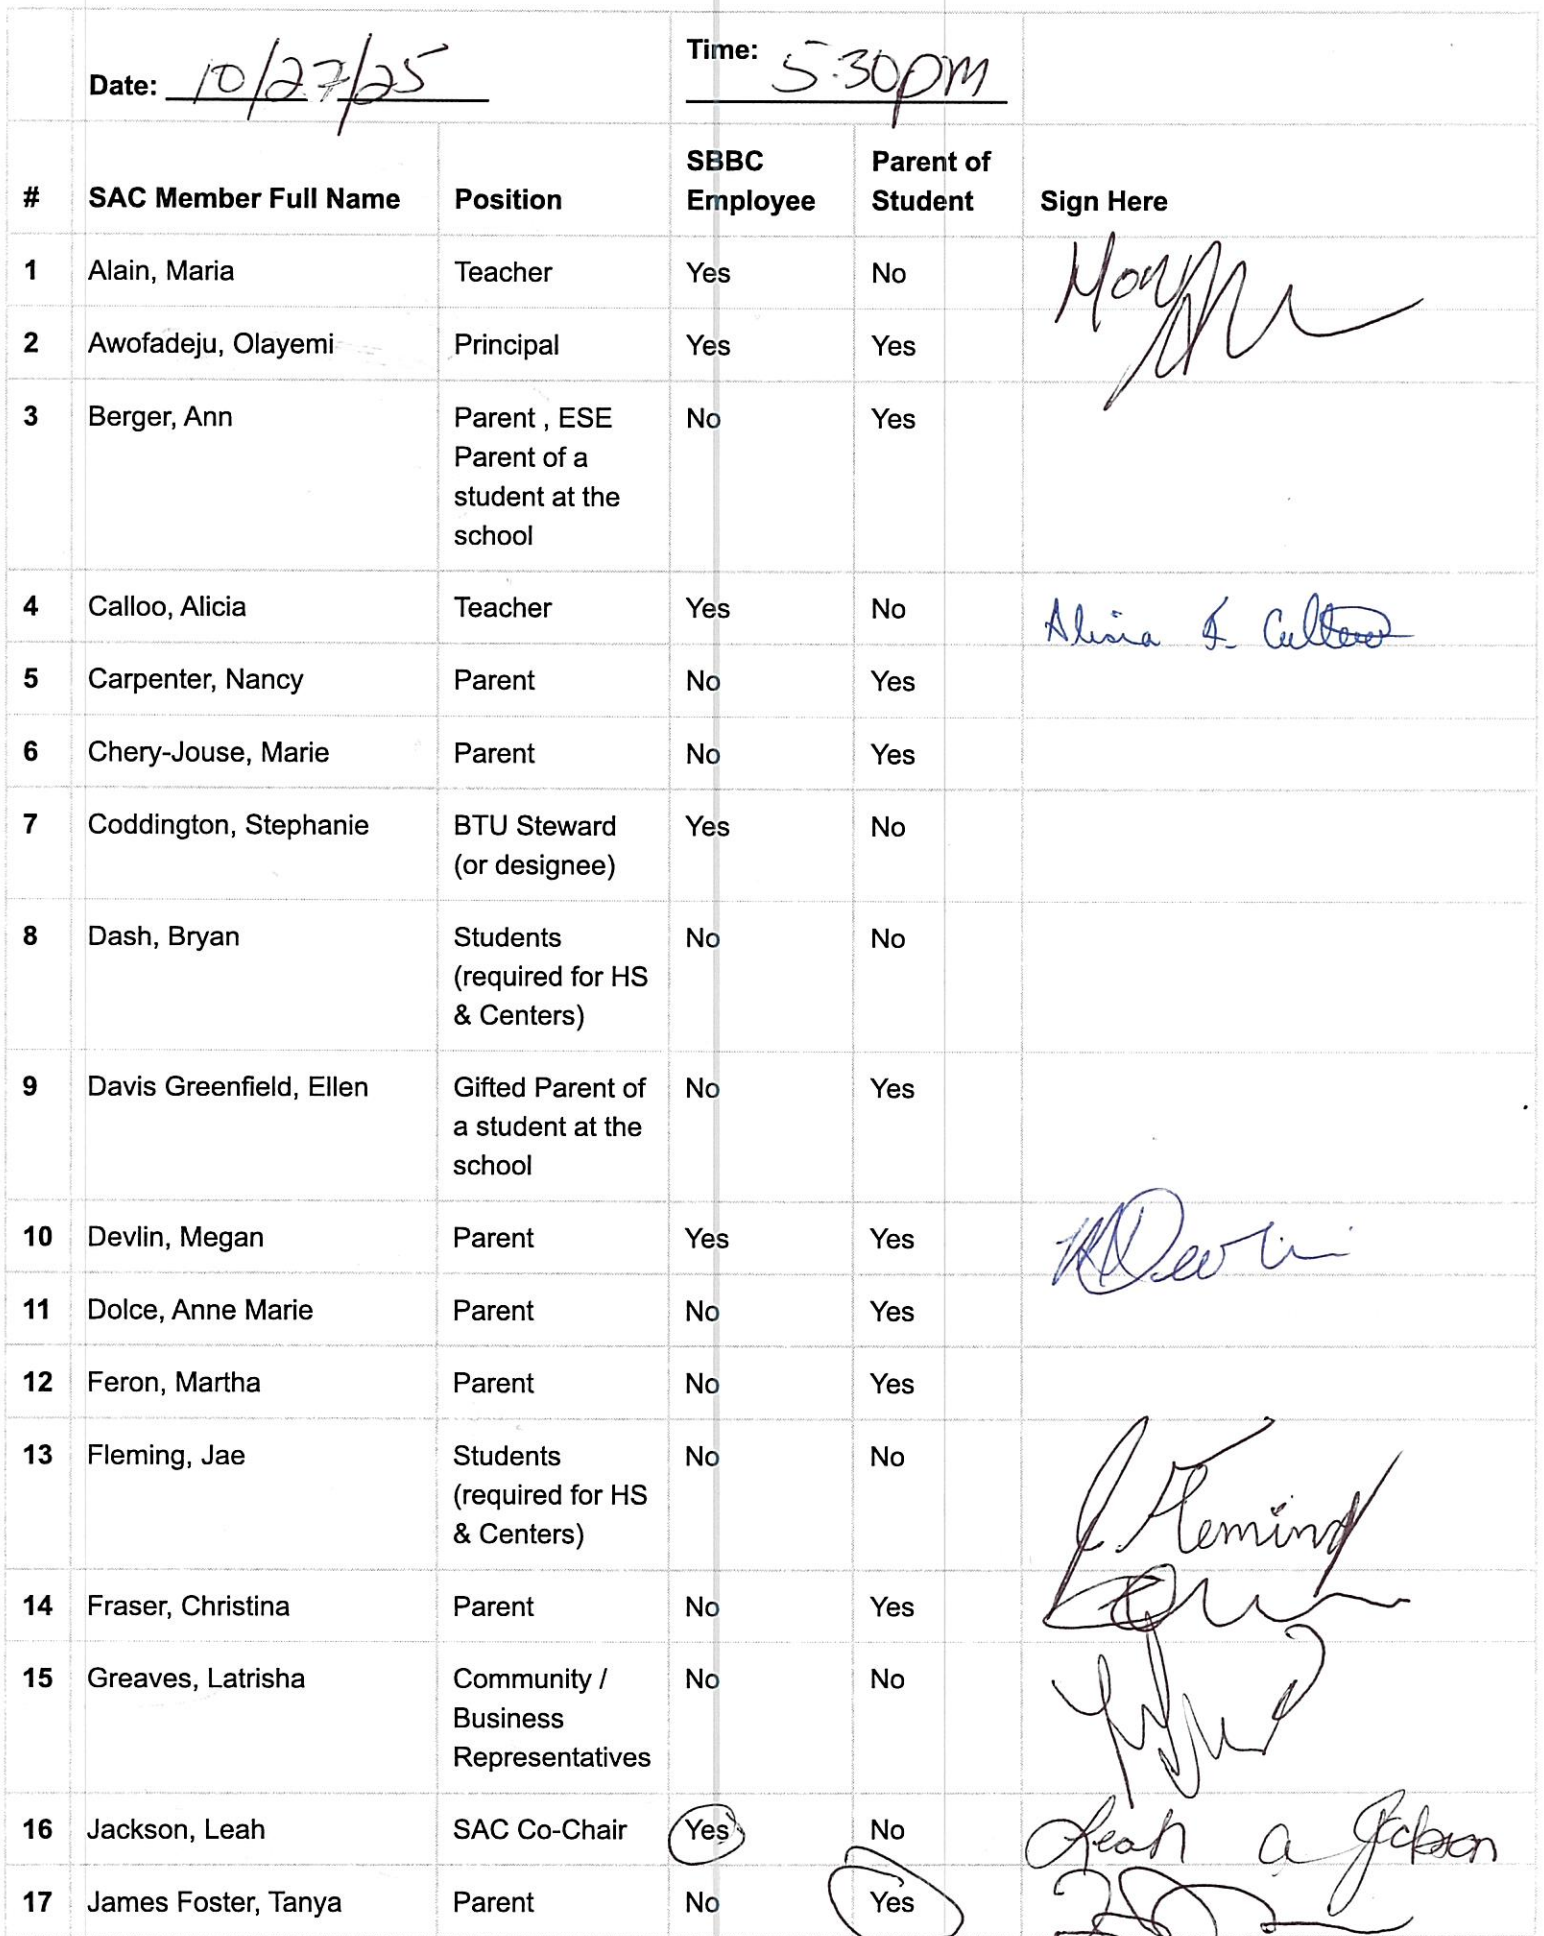 Date: 10/27/25 Time: 5:30pm
# SAC Member Full Name Position SBBC Employee Parent of Student Sign Here
1 Alain, Maria Teacher Yes No
2 Awofadeju, Olayemi Principal Yes Yes
3 Berger, Ann Parent , ESE No Yes
Parent of a
student at the
school
4 Calloo, Alicia Teacher Yes No Alicia
5 Carpenter, Nancy Parent No Yes
6 Chery-Jouse, Marie Parent No Yes
7 Coddington, Stephanie BTU Steward Yes No
(or designee)
8 Dash, Bryan Students No No
(required for HS
& Centers)
9 Davis Greenfield, Ellen Gifted Parent of No Yes
a student at the
school
10 Devlin, Megan Parent Yes Yes MDevlin
11 Dolce, Anne Marie Parent No Yes
12 Feron, Martha Parent No Yes
13 Fleming, Jae Students No No J. Fleming
(required for HS
& Centers)
14 Fraser, Christina Parent No Yes
15 Greaves, Latrisha Community / No No
Business
Representatives
16 Jackson, Leah SAC Co-Chair Yes No Leah a Jackson
17 James Foster, Tanya Parent No Yes